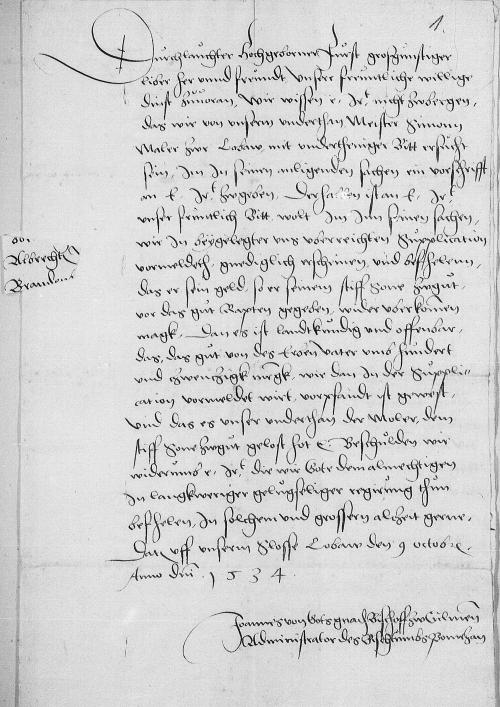 1.
Durchlauchter Hochgeborner Furst großgunstiger
liber her unnd freundt Unsere freuntliche willige
dinst zuuoran, Wir wissen e. Irt nicht zubergen,
das wir von unserm underthan Meister Simonn
Maler zur Lobaw mit undertheniger Bitt ersucht
sein, Im In seinen anligenden sachen ein vorschrifft
an E. Irt zugeben, Derhalben ist an E. Irt
unser freuntlich Bitt, wolt Im Inn seinen sachen,
wie In beygelegter uns uberreichten Supplication
vormeldeth, gnediglich erscheinen und beffhelenn,
das er sein geld, so er seinem stiff Sone zugut,
vor das gut Raxten gegeben, wider uberkomen
magk, Dan es ist landtkundig und offenbar,
das, das gut von des Erben vater umb hundert
und zwenzigk mrgk, wie dan In der Suppli-
cation vormeldet wirt, vorpfandt ist gewest,
Und das es unser underthan der Moler, dem
stiff Sone zugut gelost hot etc. Beschulden wir
widerumb e. Irt die wir Gote dem almechtigen
In langkweriger gelugseliger regirung thun
beffhelen, In solchem und grossern alzeit gerne,
Dat uff unserm Slosse Lobaw den 9 octobr.
Anno dni. 1534.
Joannes von Gots gnad Bischoff zu Culmen
Administrator des Bischtumbs Pomezan
von
Albrecht
Brandenb